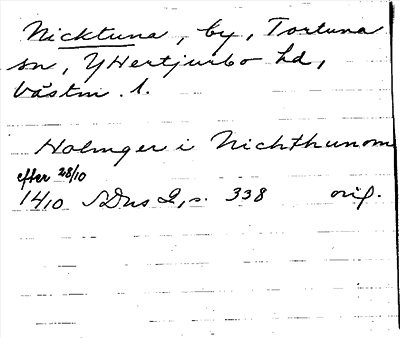 Nicktuna, by, Tortuna
sn, Yttertjurbo hd,
Västm. l.
Holmger i Nichthunom
efter 28/10
1410 SDns 2, s. 338 orig.